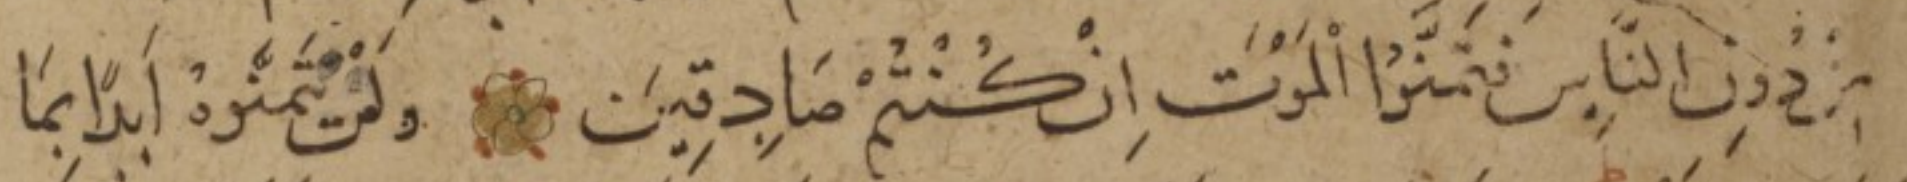 مِنْ دُونِ النَّاسِ فَتَمَنَّوُا الْمَوْتَ اِنْ كُنْتُمْ صَادِقِينَ وَلَنْ يَتَمَنَّوْهُ اَبَدًا بِمَا